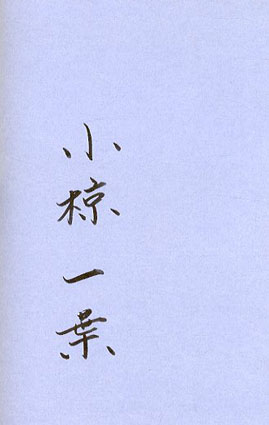 小椋一葉